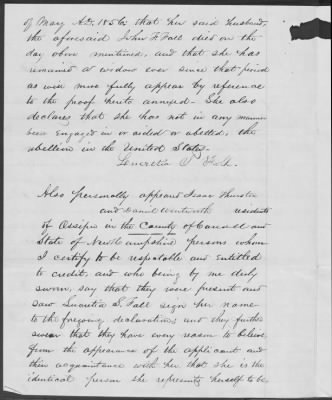 of May A.D. 1856 that her said husband,
the aforesaid John F. Fall died on the
day above mentioned, and that she has
remained a widow ever since that period
as will more fully appear by reference
to the proof hereto annexed. She also
declares that she has not in any manner
been engaged in or aided or abetted, the
rebellion in the United States.
Lucretia S. Fall.
Also personally appeared Isaac Thurston
and Daniel Wentworth residents
of Ossipee in the County of Carroll and
State of New Hampshire persons whom
I certify to be respectable and entitled
to credit, and who being by me duly
sworn, say that they were present and
saw Lucretia S. Fall sign her name
to the foregoing declaration, and they further
swear that they have every reason to believe
from the appearance of the applicant and
their acquaintance with her that she is the
identical person she represents herself to be